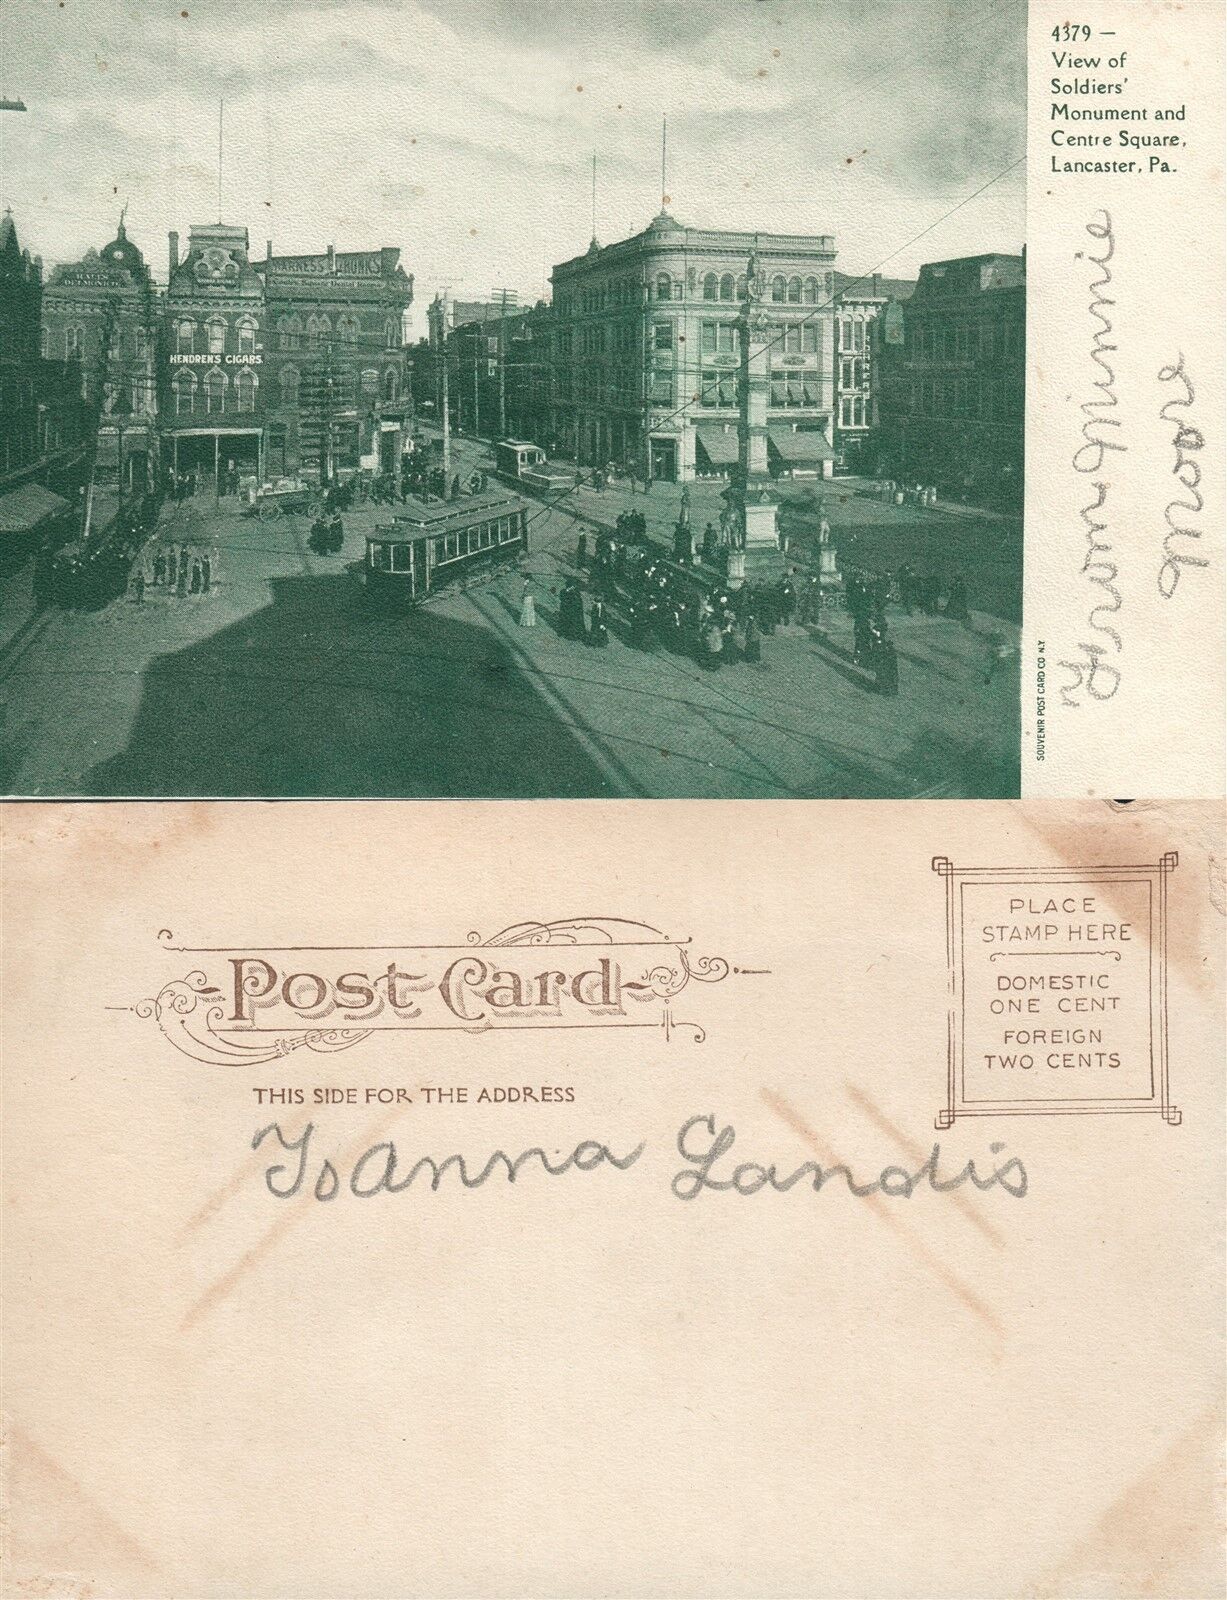 4379 —
View of
Soldiers'
Monument and
Centre Square,
Lancaster, Pa.
HENDREN'S CIGARS.
HARNESS TRUNKS
DELMONICO
from Minnie
Moore
SOUVENIR POST CARD CO N.Y
Post Card
THIS SIDE FOR THE ADDRESS
PLACE
STAMP HERE
DOMESTIC
ONE CENT
FOREIGN
TWO CENTS
To Anna Landis